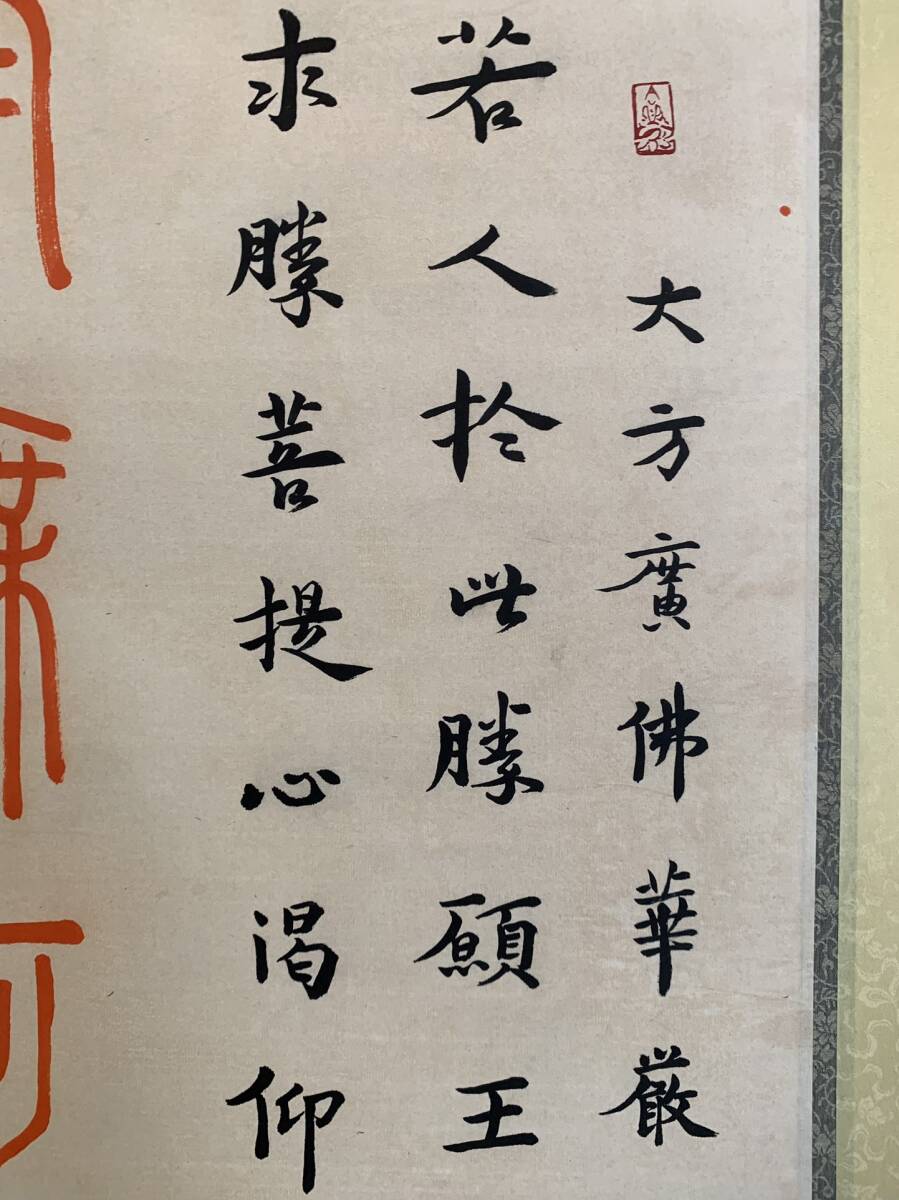 大方廣佛華嚴
若人於此勝願王
求勝菩提心渴仰